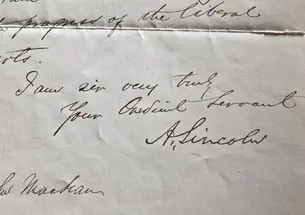 progress of the Liberal
I am sir very truly
Your Obedient Servant
A, Lincoln